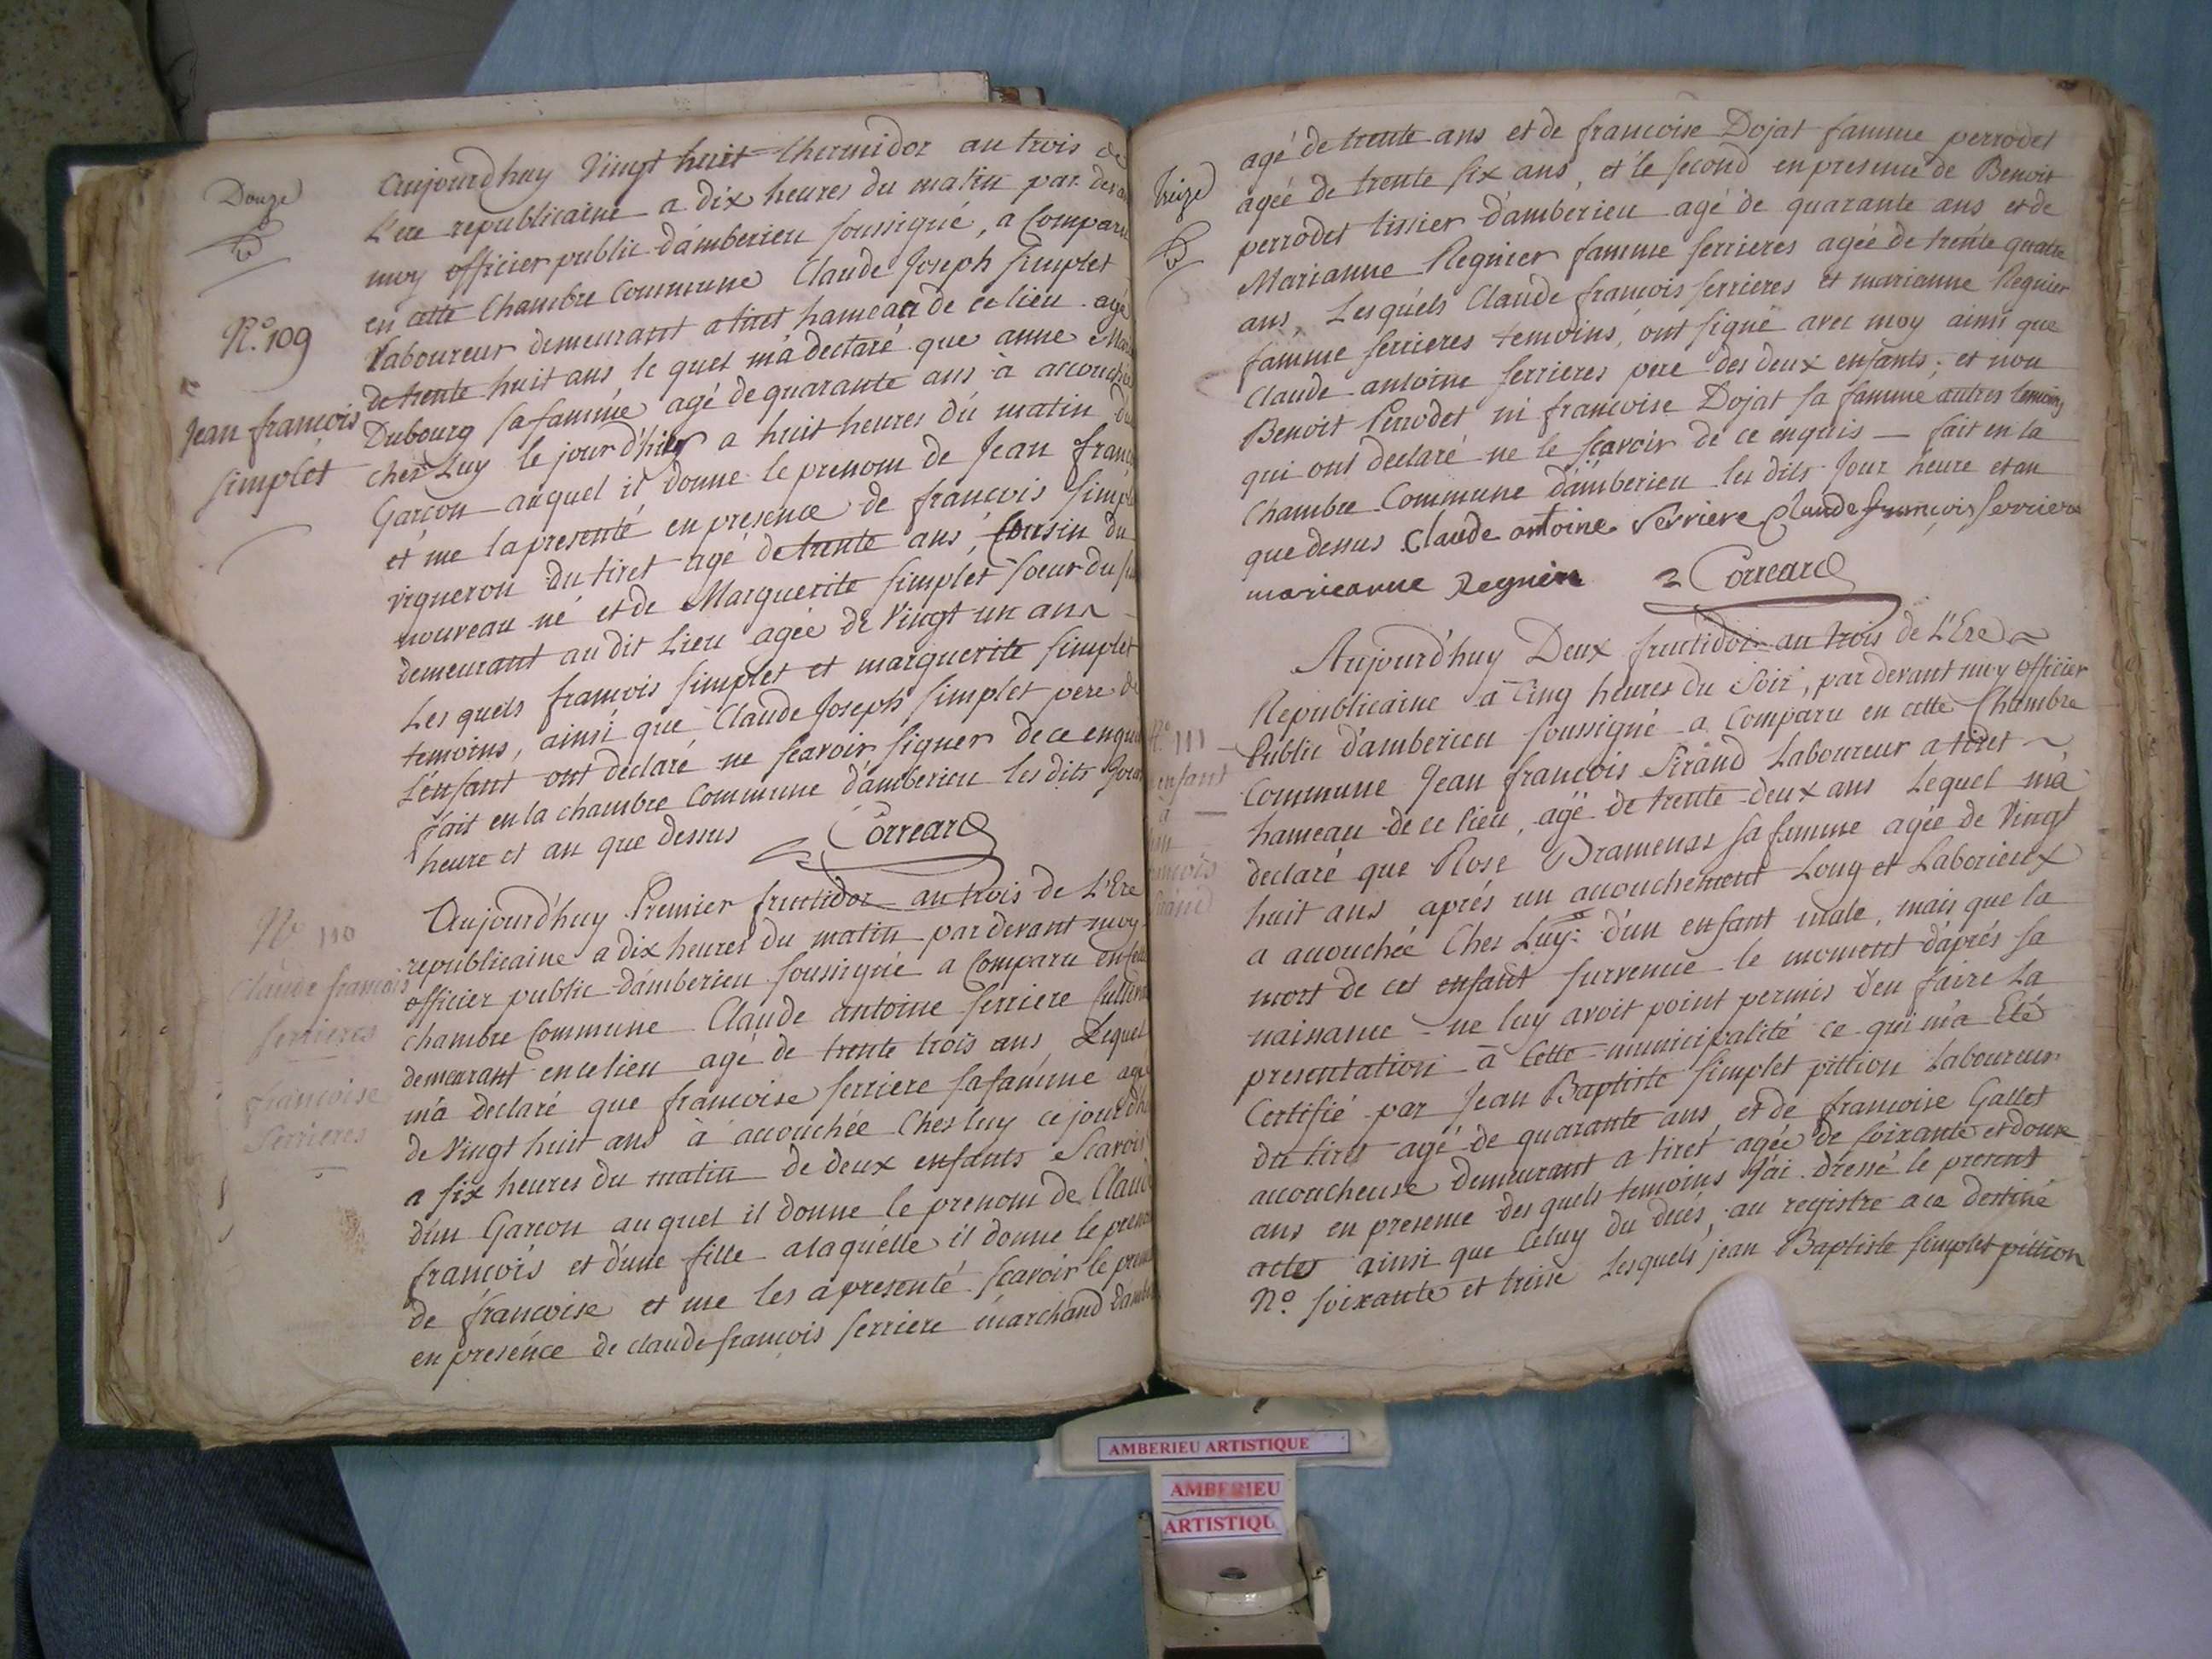 Douze
N.º 109
Jean francois
simplet
Aujourdhuy Vingt huit thermidor an trois de
L'ere republicaine a dix heures du matin par deva
moy officier public d'amberieu soussigné, a Comparu
en cette Chambre Commune Claude Joseph simplet
Laboureur demeurant a tiret hameau de ce lieu agé
de trente huit ans le quel m'a declaré que anne Mar
Dubourg sa famme agé de quarante ans à accouché
chés Luy le jour d'hier a huit heures du matin d'u
Garcon auquel il donne le prenom de Jean franco
et me la presenté en presence de francois simpl
vigneron du tiret agé de trente ans, Cousin du
nouveau né et de Marguerite simplet soeur du
demeurant au dit Lieu agée de Vingt un ans
Les quels francois simplet et marguerite simplet
temoins, ainsi que Claude Joseph simplet pere de
L'enfant ont declaré ne scavoir signer de ce enquis
fait en la chambre Commune d'amberieu les dits Jour
heure et an que dessus Correard
N.º 110
Claude francois
serrieres
francoise
Serrieres
Aujourd'huy Premier fructidor an trois de L'Ere
republicaine a dix heures du matin par devant moy
officier public d'amberieu soussigné a Comparu en cette
chambre Commune Claude antoine serriere Cultiva
demeurant en ce lieu agé de trente trois ans Lequel
m'a declaré que francoise serriere sa famme ag
de Vingt huit ans à accouchée Chés luy ce jour d'h
a six heures du matin de deux enfants Scavoir
d'un Garcon auquel il donne le prenom de Claude
francois et d'une fille a laquelle il donne le preno
de francoise et me les a presenté scavoir le prem
en presence de claude francois serriere marchand d'ambe
treize
agé de trente ans et de francoise Dojat famme perrodet
agée de trente six ans, et le second en presence de Benoit
perrodet tissier d'amberieu agé de quarante ans et de
Marianne Regnier famme serrieres agée de trente quatre
ans, Lesquels Claude francois serrieres et marianne Regnier
famme serrieres temoins, ont signé avec moy ainsi que
Claude antoine serrieres pere des deux enfants; et non
Benoit Perrodet ni francoise Dojat sa famme autres temoins
qui ont declaré ne le scavoir de ce enquis — fait en la
Chambre Commune d'amberieu les dits Jour heure et an
que dessus Claude antoine Serriere Claude francois serriere
marieanne Regnier Correard
N.º 111
enfant
à
francois
Sirand
Aujourd'huy Deux fructidor an trois de L'Ere
Republicaine à Cinq heures du Soir, par devant moy officier
Public d'amberieu soussigné a Comparu en cette Chambre
Commune Jean francois Sirand Laboureur a tiret
hameau de ce lieu, agé de trente deux ans Lequel m'a
declaré que Rose Dramenas sa famme agée de Vingt
huit ans aprés un accouchement Long et Laborieux
a accouchée Chés Luy: d'un enfant male, mais que la
mort de cet enfant survenue le moment d'aprés sa
naissance ne luy avoit point permis d'en faire La
presentation à Cette municipalité ce qui m'a Eté
Certifié par Jean Baptiste simplet pittion Laboureur
du tiret agé de quarante ans et de francoise Gallet
accoucheuse demeurant a tiret agée de soixante et douze
ans en presence des quels temoins j'ai dressé le present
acte ainsi que Celuy du decés, au registre a ce destiné
N.º soixante et treise Lesquels jean Baptiste simplet pittion
AMBERIEU ARTISTIQUE
AMBERIEU
ARTISTIQU